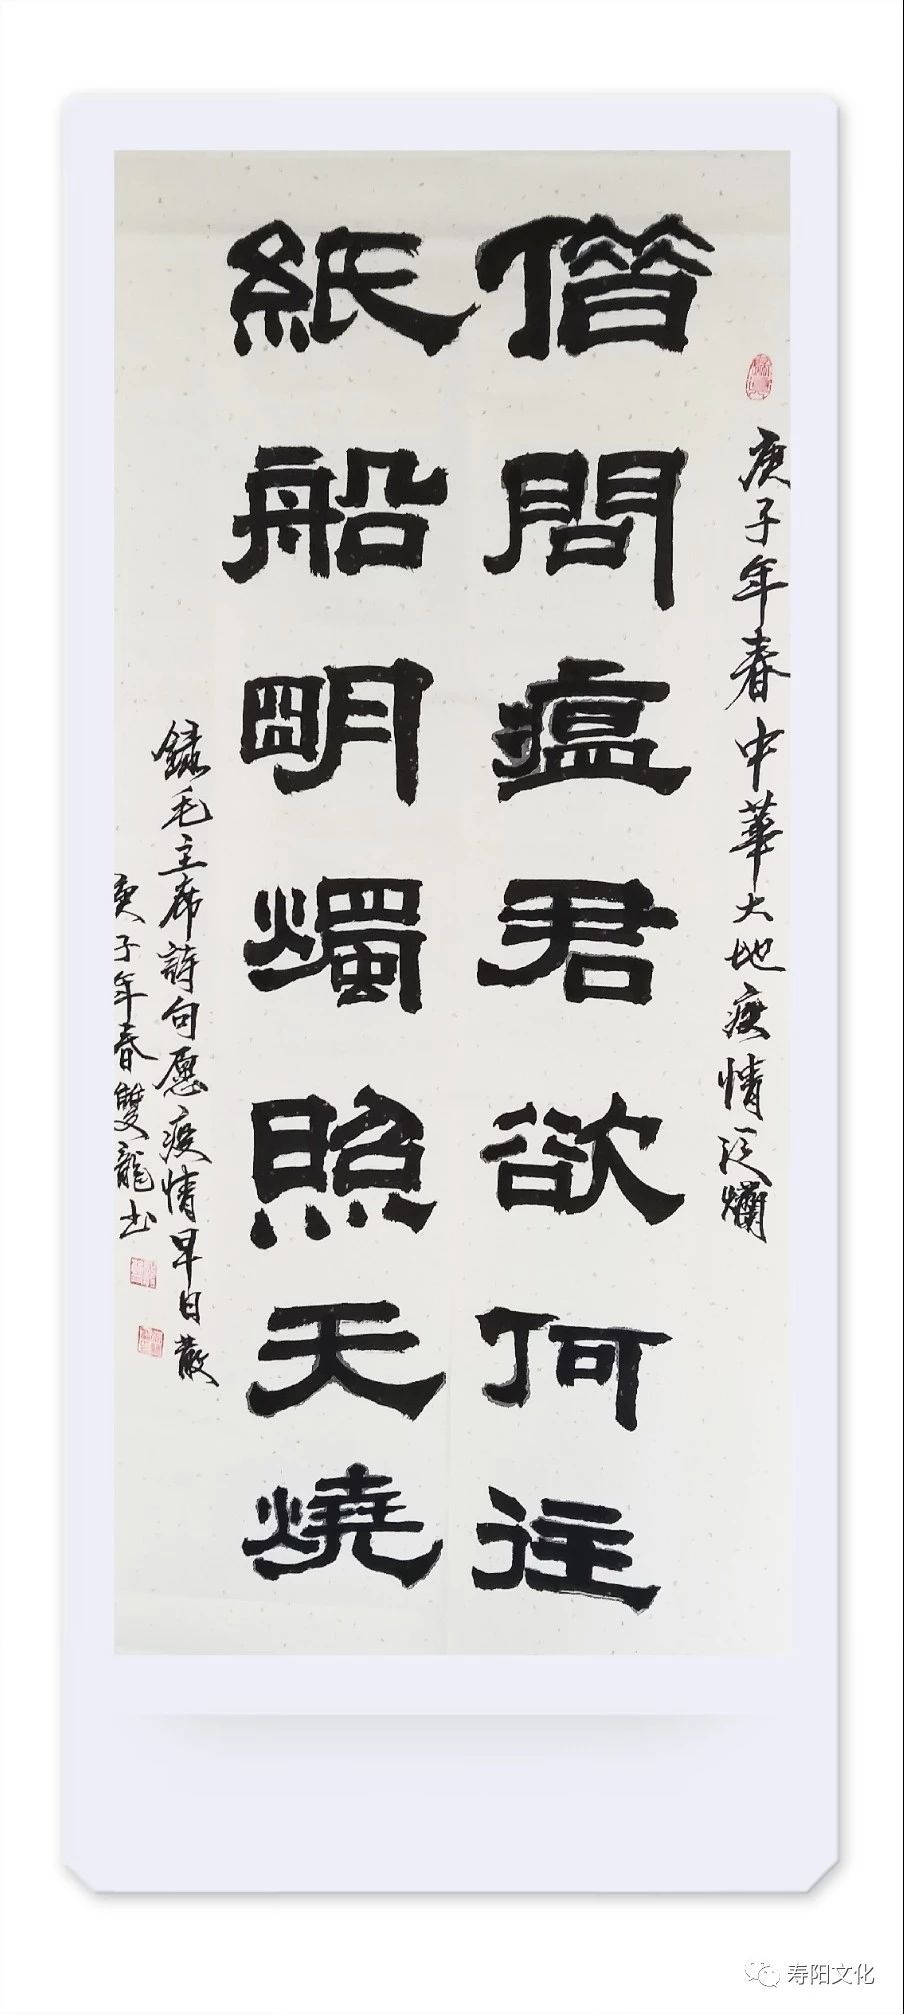 庚子年春中華大地疫情泛爛
借問瘟君欲何往
紙船明燭照天燒
錄毛主席詩句愿疫情早日散
庚子年春雙龍书
寿阳文化